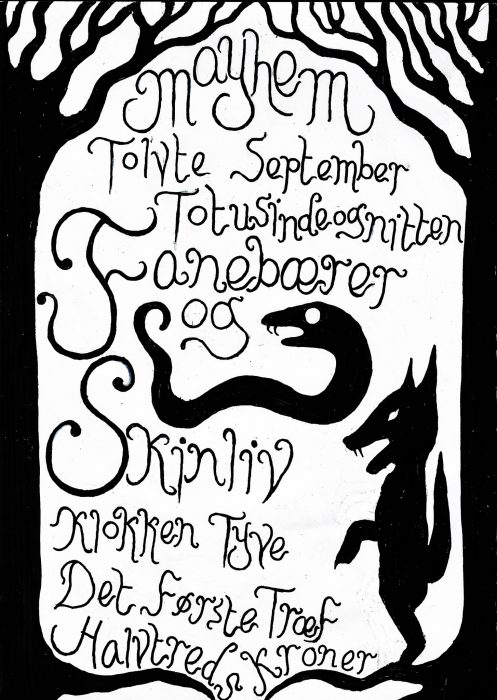 mayhem
Tolvte September
Totusindeognitten
Fanebærer
og
Skinliv
Klokken Tyve
Det første Træf
Halvtreds Kroner